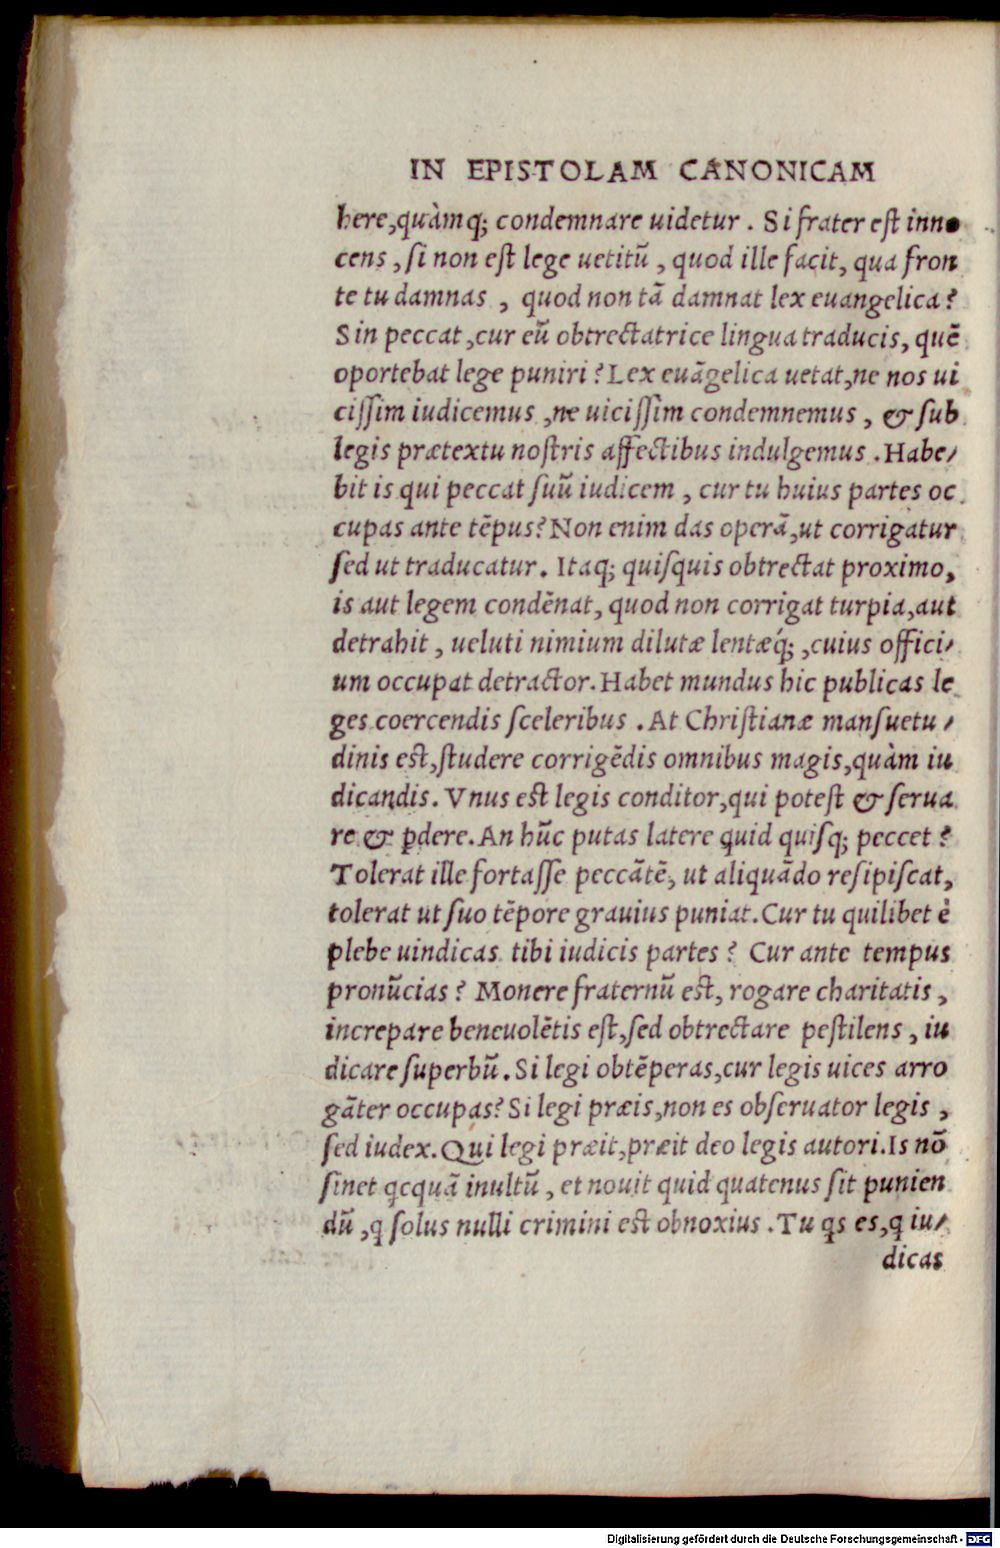 IN EPISTOLAM CANONICAM
here,quàmq; condemnare uidetur . Si frater est inno
cens , si non est lege uetitū , quod ille facit, qua fron
te tu damnas , quod non tā damnat lex euangelica?
Sin peccat ,cur eū obtrectatrice lingua traducis, quē
oportebat lege puniri? Lex euāgelica uetat,ne nos ui
cissim iudicemus ,ne uicissim condemnemus , & sub
legis prætextu nostris affectibus indulgemus .Habe/
bit is qui peccat suū iudicem , cur tu huius partes oc
cupas ante tēpus? Non enim das operā,ut corrigatur
sed ut traducatur. Itaq; quisquis obtrectat proximo,
is aut legem condēnat, quod non corrigat turpia,aut
detrahit , ueluti nimium dilutæ lentæq́; ,cuius offici/
um occupat detractor. Habet mundus hic publicas le
ges coercendis sceleribus . At Christianæ mansuetu /
dinis est,studere corrigēdis omnibus magis,quàm iu
dicandis. Vnus est legis conditor,qui potest & serua
re & ꝑdere. An hūc putas latere quid quisq; peccet?
Tolerat ille fortasse peccātē, ut aliquādo resipiscat,
tolerat ut suo tēpore grauius puniat. Cur tu quilibet è
plebe uindicas tibi iudicis partes? Cur ante tempus
pronūcias? Monere fraternū est, rogare charitatis ,
increpare beneuolētis est,sed obtrectare pestilens , iu
dicare superbū. Si legi obtēperas,cur legis uices arro
gāter occupas? Si legi præis,non es obseruator legis ,
sed iudex. Qui legi præit,præit deo legis autori. Is nō
sinet ꝗcquā inultū , et nouit quid quatenus sit punien
dū ,ꝗ solus nulli crimini est obnoxius . Tu ꝗs es,ꝗ iu/
dicas
Digitalisierung gefördert durch die Deutsche Forschungsgemeinschaft - DFG